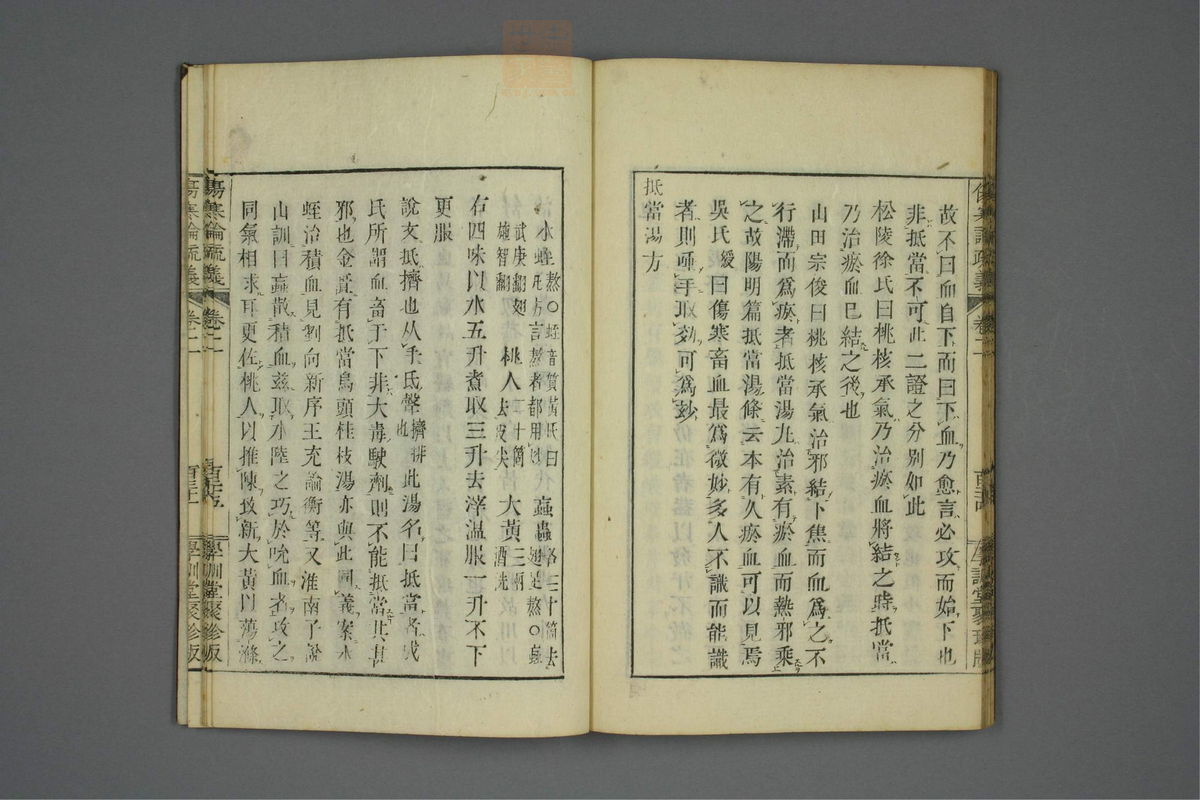 故不曰血自下而曰下血乃愈言必攻而始下也
非抵當不可此二證之分別如此
松陵徐氏曰桃核承氣乃治瘀血將結之時抵當
乃治瘀血已結之後也
山田宗俊曰桃核承氣治邪結下焦而血爲之不
行滯而爲瘀者抵當湯丸治素有瘀血而熱邪乘
之故陽明篇抵當湯條云本有久瘀血可以見焉
吳氏綬曰傷寒畜血最爲微妙多人不識而能識
者則唾手取效可爲玅
抵當湯方
水蛭熬〇蛭音質黃氏曰
方言熬者都用
虻蟲各三十箇去翅足熬〇虻
武庚翻翅
施智翻
桃人二十箇去皮尖
大黃三兩酒洗
右四味以水五升煮取三升去滓溫服一升不下
更服
說文抵擠也从手氐聲擠排也此湯名曰抵當者成
氏所謂血畜于下非大毒駛劑則不能抵當其甚
邪也金匱有抵當烏頭桂枝湯亦與此同義案水
蛭治積血見劉向新序王充論衡等又淮南子說
山訓曰蝱散積血玆取水陸之巧於吮血者攻之
同氣相求耳更佐桃人以推陳致新大黃以蕩滌
傷寒論疏義
卷二
學訓堂聚珍版